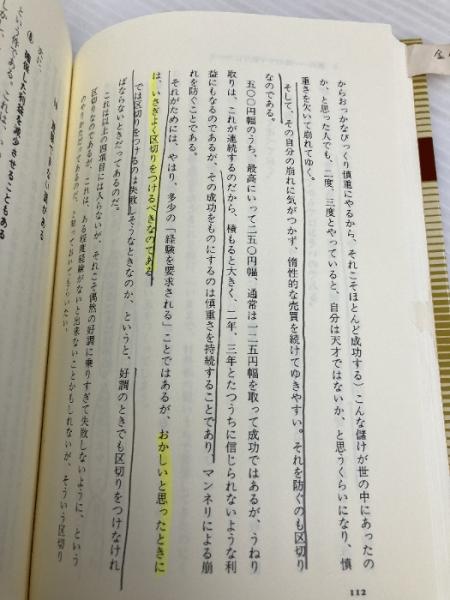 からおっかなびっくり慎重にやるから、それこそほとんど成功する)こんな儲けが世の中にあったの
か、と思った人でも、二度、三度とやっていると、自分は天才ではないか、と思うくらいになり、慎
重さを欠いて崩れてゆく。
そして、その自分の崩れに気がつかず、惰性的な売買を続けてゆきやすい。それを防ぐのも区切り
なのである。
五〇〇円幅のうち、最高にいって二五〇円幅、通常は一二五円幅を取って成功ではあるが、うねり
取りは、これが連続するのだから、積もると大きく、二年、三年とたつうちに信じられないような利
益にもなるのであるが、その成功をものにするのは慎重さを持続することであり、マンネリによる崩
れを防ぐことである。
それがためには、やはり、多少の「経験を要求される」ことではあるが、おかしいと思ったときに
は、いさぎよく区切りをつけるべきなのである
では区切りをつけるのは失敗しそうなときなのか、というと、好調のときでも区切りをつけなけれ
ばならないときだってあるのだ。
これは以上の四項目には入らないが、それこそ偶然の好調に乗りすぎて失敗しないように、という
区切りなのであるが、これは、ある程度経験がないと出来ないことかもしれないが、そういう区切り
のやりかただってあるのだ、と知っておいてもらいたい。
という件である。これは、い
112